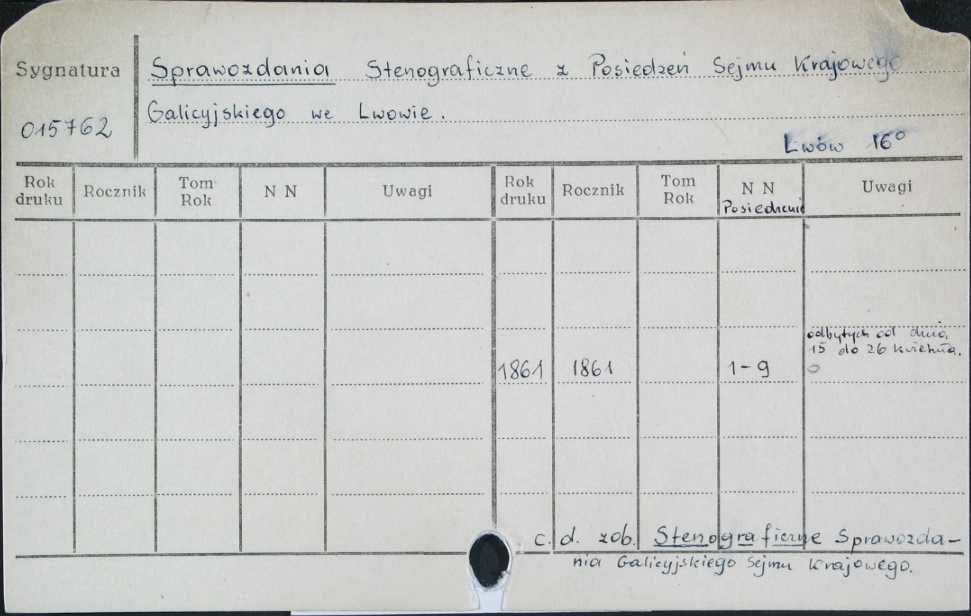 Sygnatura
Sprawozdania Stenograficzne z Posiedzeń Sejmu Krajowego
015762
Galicyjskiego we Lwowie.
Lwów 16°
Rok druku Rocznik Tom Rok N N Uwagi Rok druku Rocznik Tom Rok N N Uwagi
Posiedzenie
odbytych od dnia
15 do 26 kwietnia.
1861 1861 1-9
c. d. zob. Stenograficzne Sprawozda-
nia Galicyjskiego Sejmu Krajowego.